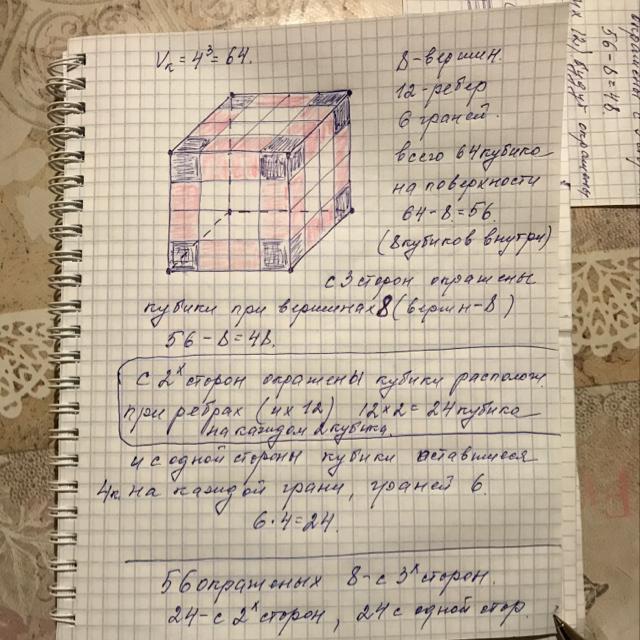 Vк = 4³ = 64.
8-вершин.
12-ребер
6 граней.
всего 64 кубика
на поверхности
64-8=56.
(8 кубиков внутри)
с 3 сторон окрашены
кубики при вершинах 8 (вершин-8)
56-8=48.
с 2х сторон окрашены кубики располож.
при ребрах (их 12) 12×2=24 кубика
на каждом 2 кубика.
и с одной стороны кубики оставшиеся
4к на каждой грани, граней 6.
6·4=24.
56 окрашеных 8-с 3х сторон.
24-с 2х сторон, 24 с одной стор.
56-8=48
их 12) будут окрашены